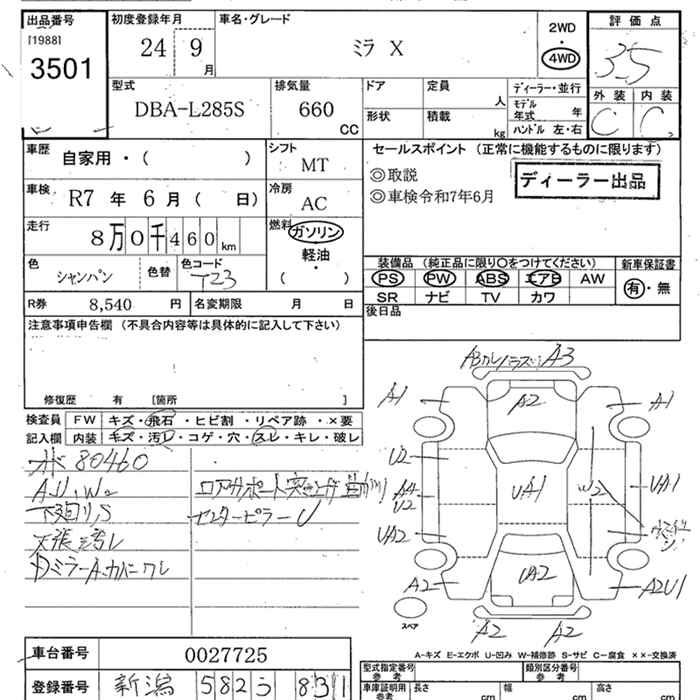 出品番号
[1988]
3501
初度登録年月
24 9
月
車名・グレード
ミラ X
2WD
・
4WD
評価点
3.5
外装 内装
C C
型式
DBA-L285S
排気量
660
CC
ドア
形状
定員
人
積載
kg
ディーラー・並行
モデル
年式 年
ハンドル 左・右
車歴 自家用・( )
シフト
MT
車検 R7 年 6 月 ( 日)
冷房
AC
走行
8万0千460km
燃料
ガソリン
軽油
・
( )
色
シャンパン
色替
色コード
T23
R券 8,540 円
名変期限 月 日
セールスポイント (正常に機能するものに限ります)
◎取説
◎車検令和7年6月
ディーラー出品
装備品 (純正品に限り〇をつけてください)
PS PW ABS エアB AW
SR ナビ TV カワ
新車保証書
有・無
後日品
注意事項申告欄 (不具合内容等は具体的に記入して下さい)
修復歴 有 [箇所 ]
検査員
記入欄
FW キズ・飛石・ヒビ割・リペア跡・×要
内装 キズ・汚レ・コゲ・穴・スレ・キレ・破レ
80460
A,U,W2
下廻りS
天張汚レ
Dミラー
ロアサポート突上げ曲がり
センターピラーU
A3
A1
A2
A1
U2
UA1
W2
UA1
A4
U2
UA2
UA2
A2
A2U1
A2
A2
スペア
A-キズ E-エクボ U-凹み W-補修跡 S-サビ C-腐食 ××-交換済
車台番号 0027725
登録番号 新潟 582 831
型式指定番号
参考
類別区分番号
参考
車庫証明用
参考
長さ
cm
幅
cm
高さ
cm